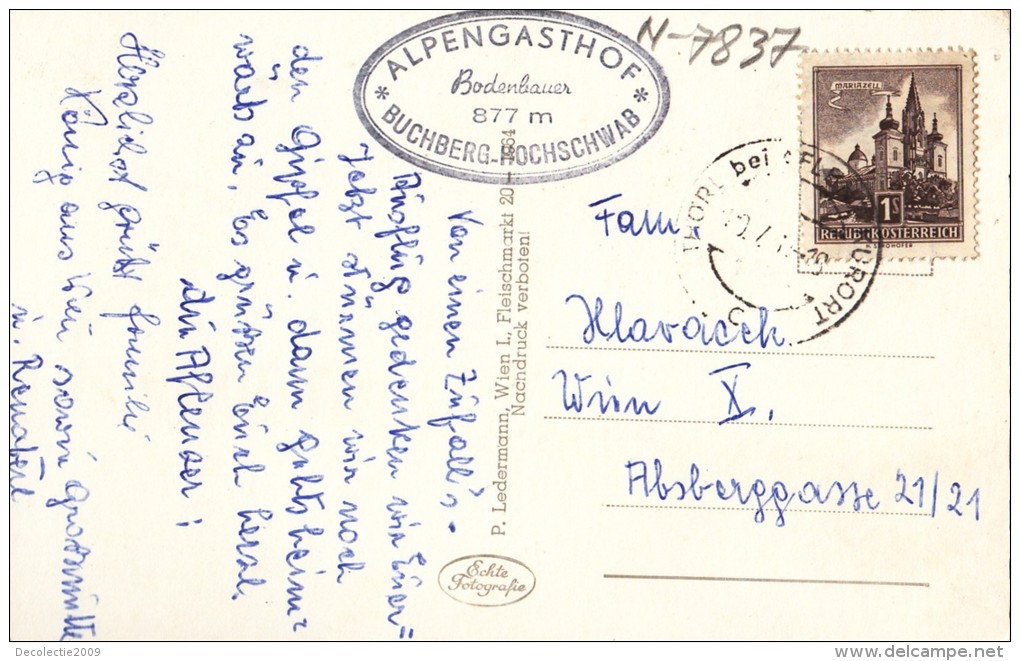 N-7837
ALPENGASTHOF
Bodenbauer
877 m
* BUCHBERG-HOCHSCHWAB *
MARIAZELL
1S
REPUBLIK ÖSTERREICH
THÖRL bei AFLENZ KURORT
P. Ledermann, Wien I., Fleischmarkt 20 - 1964
Nachdruck verboten!
Echte
Fotografie
Von einem Zufall's-
Ausflug gedenken wir Euer
Jetzt stürmen wir noch
den Gipfel u. dann gehts heim-
wärts an, Es grüssen Euch herzl.
die Aflenzer!
Herzlichst grüßt Familie
König aus Wien sowie Grossmutter
u. Renaterl
Fam.
Hlavácek
Wien X.
Absberggasse 21/21
Decolectie2009
delcampe.net